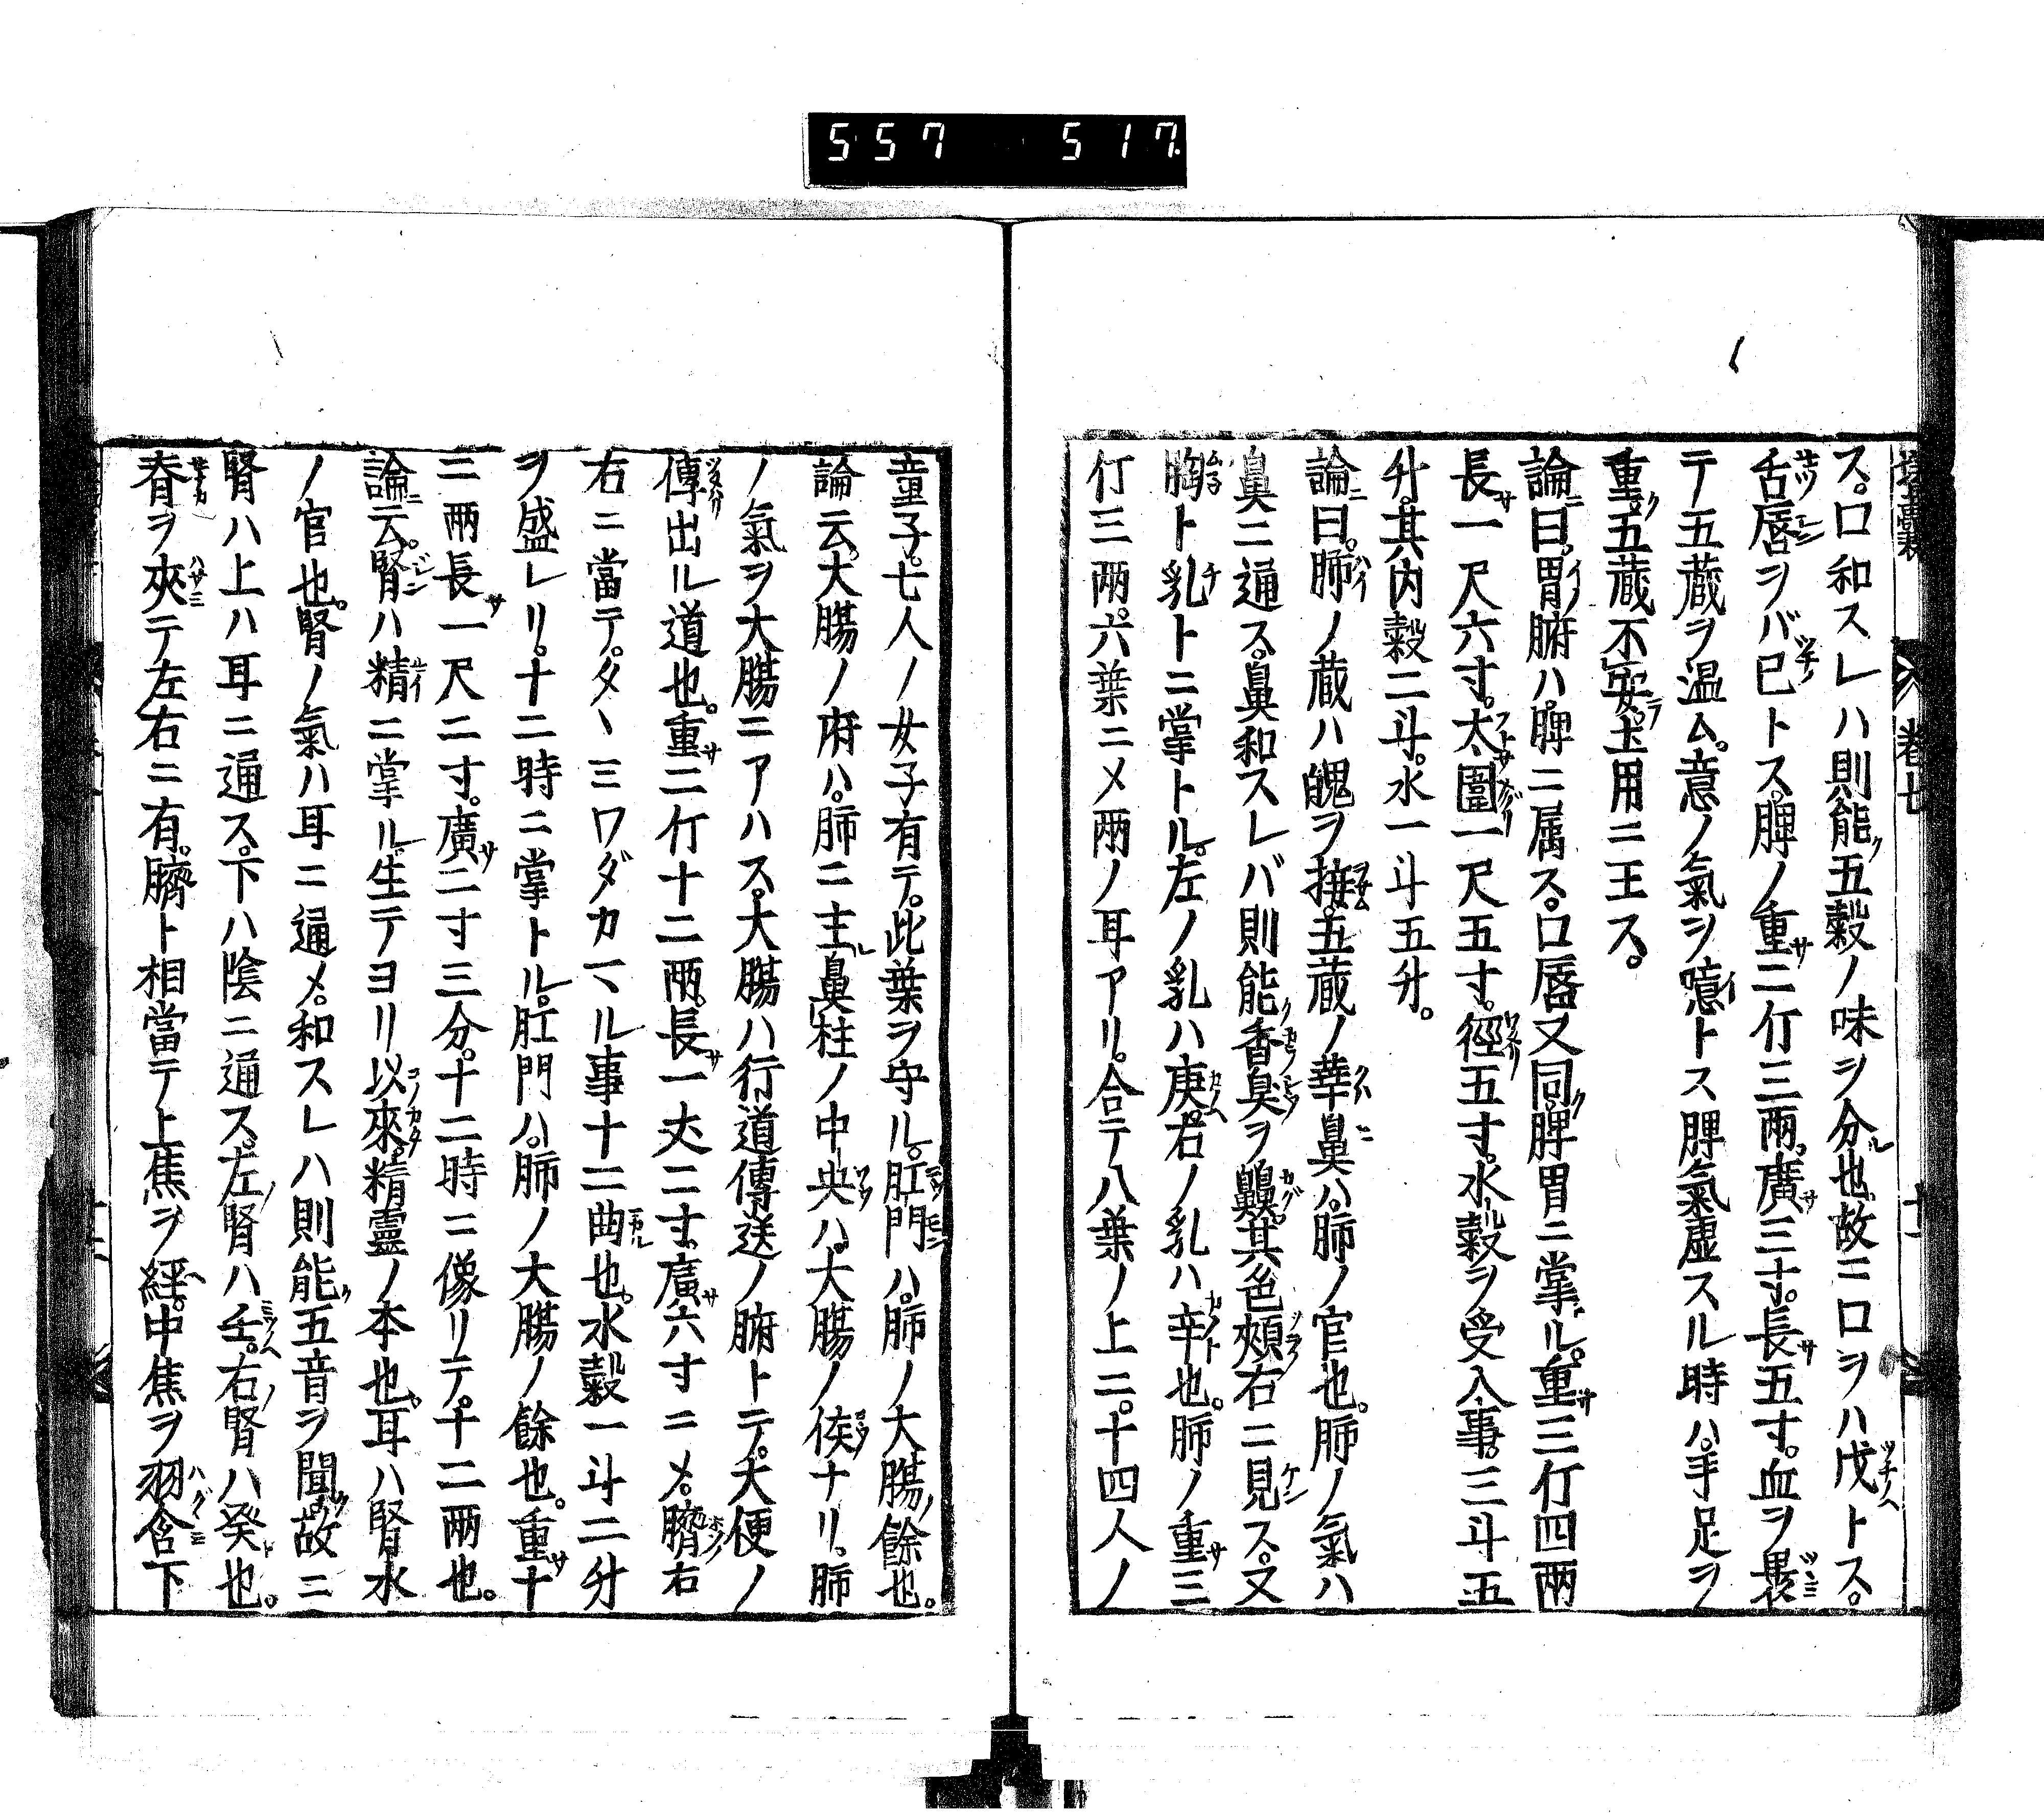 557 517
卷七
ス。口和スレハ則能五穀ノ味ヲ分也。故ニ口ヲハ戊トス。
舌唇ヲバ巳トス。脾ノ重二斤三兩。廣三寸。長五寸。血ヲ褁
テ五蔵ヲ温ム。意ノ氣ヲ噫トス脾氣虚スル時ハ。手足ヲノ
重。五蔵不安。土用ニ王ス。
論曰。胃腑ハ。脾ニ属ス。口唇又同。脾胃ニ掌ル。重三斤四兩
長一尺六寸。太圍一尺五寸。徑五寸。水穀ヲ受入事。三斗五
升。其内穀二斗。水一斗五升。
論曰。肺ノ蔵ハ魄ヲ接。五蔵ノ華鼻ハ。肺ノ官也。肺ノ氣ハ
鼻ニ通ス。鼻和スレバ則能香臭ヲ齅。其色頰右ニ見ス。又
胸ト乳トニ掌トル。左ノ乳ハ庚。右ノ乳ハ辛也。肺ノ重三
斤三兩。六葉ニメ兩ノ耳アリ。合テ八葉ノ上ニ。十四人ノ
童子。七人ノ女子有テ。此葉ヲ守ル。肛門ハ。肺ノ大腸餘也。
論云。大腸ノ府ハ。肺ニ主鼻柱ノ中央ハ。大腸ノ候ナリ。肺
ノ氣ヲ大腸ニアハス。大腸ハ行道傳送ノ腑トテ。大便ノ
傳出ル道也。重二斤十二兩。長一丈二寸。廣六寸ニメ。臍右
右ニ當テ。タヽミワダカマル事十二曲也。水穀一斗二升
ヲ盛レリ。十二時ニ掌トル。肛門ハ。肺ノ大腸ノ餘也。重十
二兩長一尺二寸。廣二寸三分。十二時ニ像リテ。十二兩也。
論云。腎ハ精ニ掌ル生テヨリ以來。精靈ノ本也。耳ハ腎水
ノ官也。腎ノ氣ハ耳ニ通メ。和スレハ則能五音ヲ聞。故ニ
腎ハ上ハ耳ニ通ス。下ハ陰ニ通ス。左腎ハ壬。右腎ハ癸也。
脊ヲ夾テ左右ニ有。臍ト相當テ上焦ヲ經。中焦ヲ羽含下